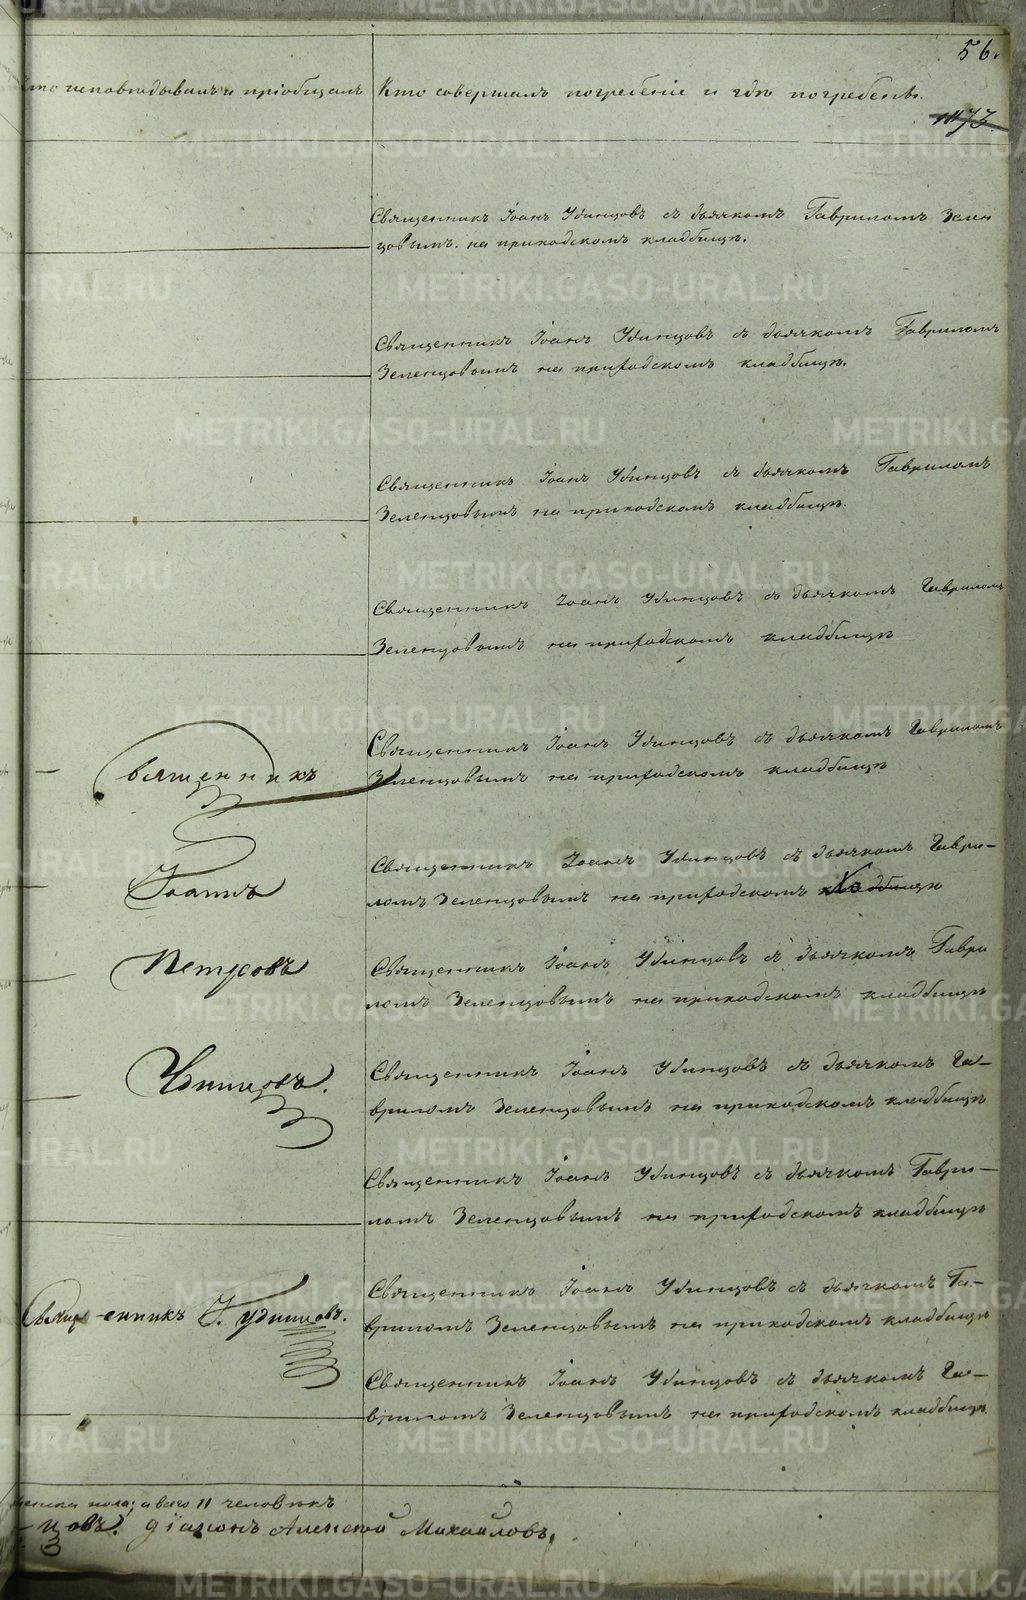 56.
Кто исповѣдывалъ и пріобщалъ
Кто совершалъ погребеніе и гдѣ погребены.
73.
Священникъ Іоанъ Удинцовъ съ дьячкомъ Гавриломъ Зелен
цовымъ. на приходскомъ кладбищѣ.
Священникъ Іоанъ Удинцовъ съ дьячкомъ Гавриломъ
Зеленцовымъ на приходскомъ кладбищѣ.
Священникъ Іоанъ Удинцовъ съ дьячкомъ Гавриломъ
Зеленцовымъ на приходскомъ кладбищѣ.
Священникъ Іоанъ Удинцовъ съ дьячкомъ Гавриломъ
Зеленцовымъ на приходскомъ кладбищѣ
Священникъ
Священникъ Іоанъ Удинцовъ съ дьячкомъ Гавриломъ
Зеленцовымъ на приходскомъ кладбищѣ
Іоаннъ
Священникъ Іоанъ Удинцовъ съ дьячкомъ Гаври-
ломъ Зеленцовымъ на приходскомъ кладбищѣ
Петровъ
Священникъ Іоанъ Удинцовъ съ дьячкомъ Гаври
ломъ Зеленцовымъ на приходскомъ кладбищѣ
Удинцовъ.
Священникъ Іоанъ Удинцовъ съ дьячкомъ Га-
вриломъ Зеленцовымъ на приходскомъ кладбищѣ
Священникъ Іоанъ Удинцовъ съ дьячкомъ Гаври-
ломъ Зеленцовымъ на приходскомъ кладбищѣ
Священникъ І. Удинцовъ.
Священникъ Іоанъ Удинцовъ съ дьячкомъ Га-
вриломъ Зеленцовымъ на приходскомъ кладбищѣ
Священникъ Іоанъ Удинцовъ съ дьячкомъ Га-
вриломъ Зеленцовымъ на приходскомъ кладбищѣ.
женска пола; а всего 11 человѣкъ
-цовъ. діаконъ Алексѣй Михайловъ,
METRIKI.GASO-URAL.RU